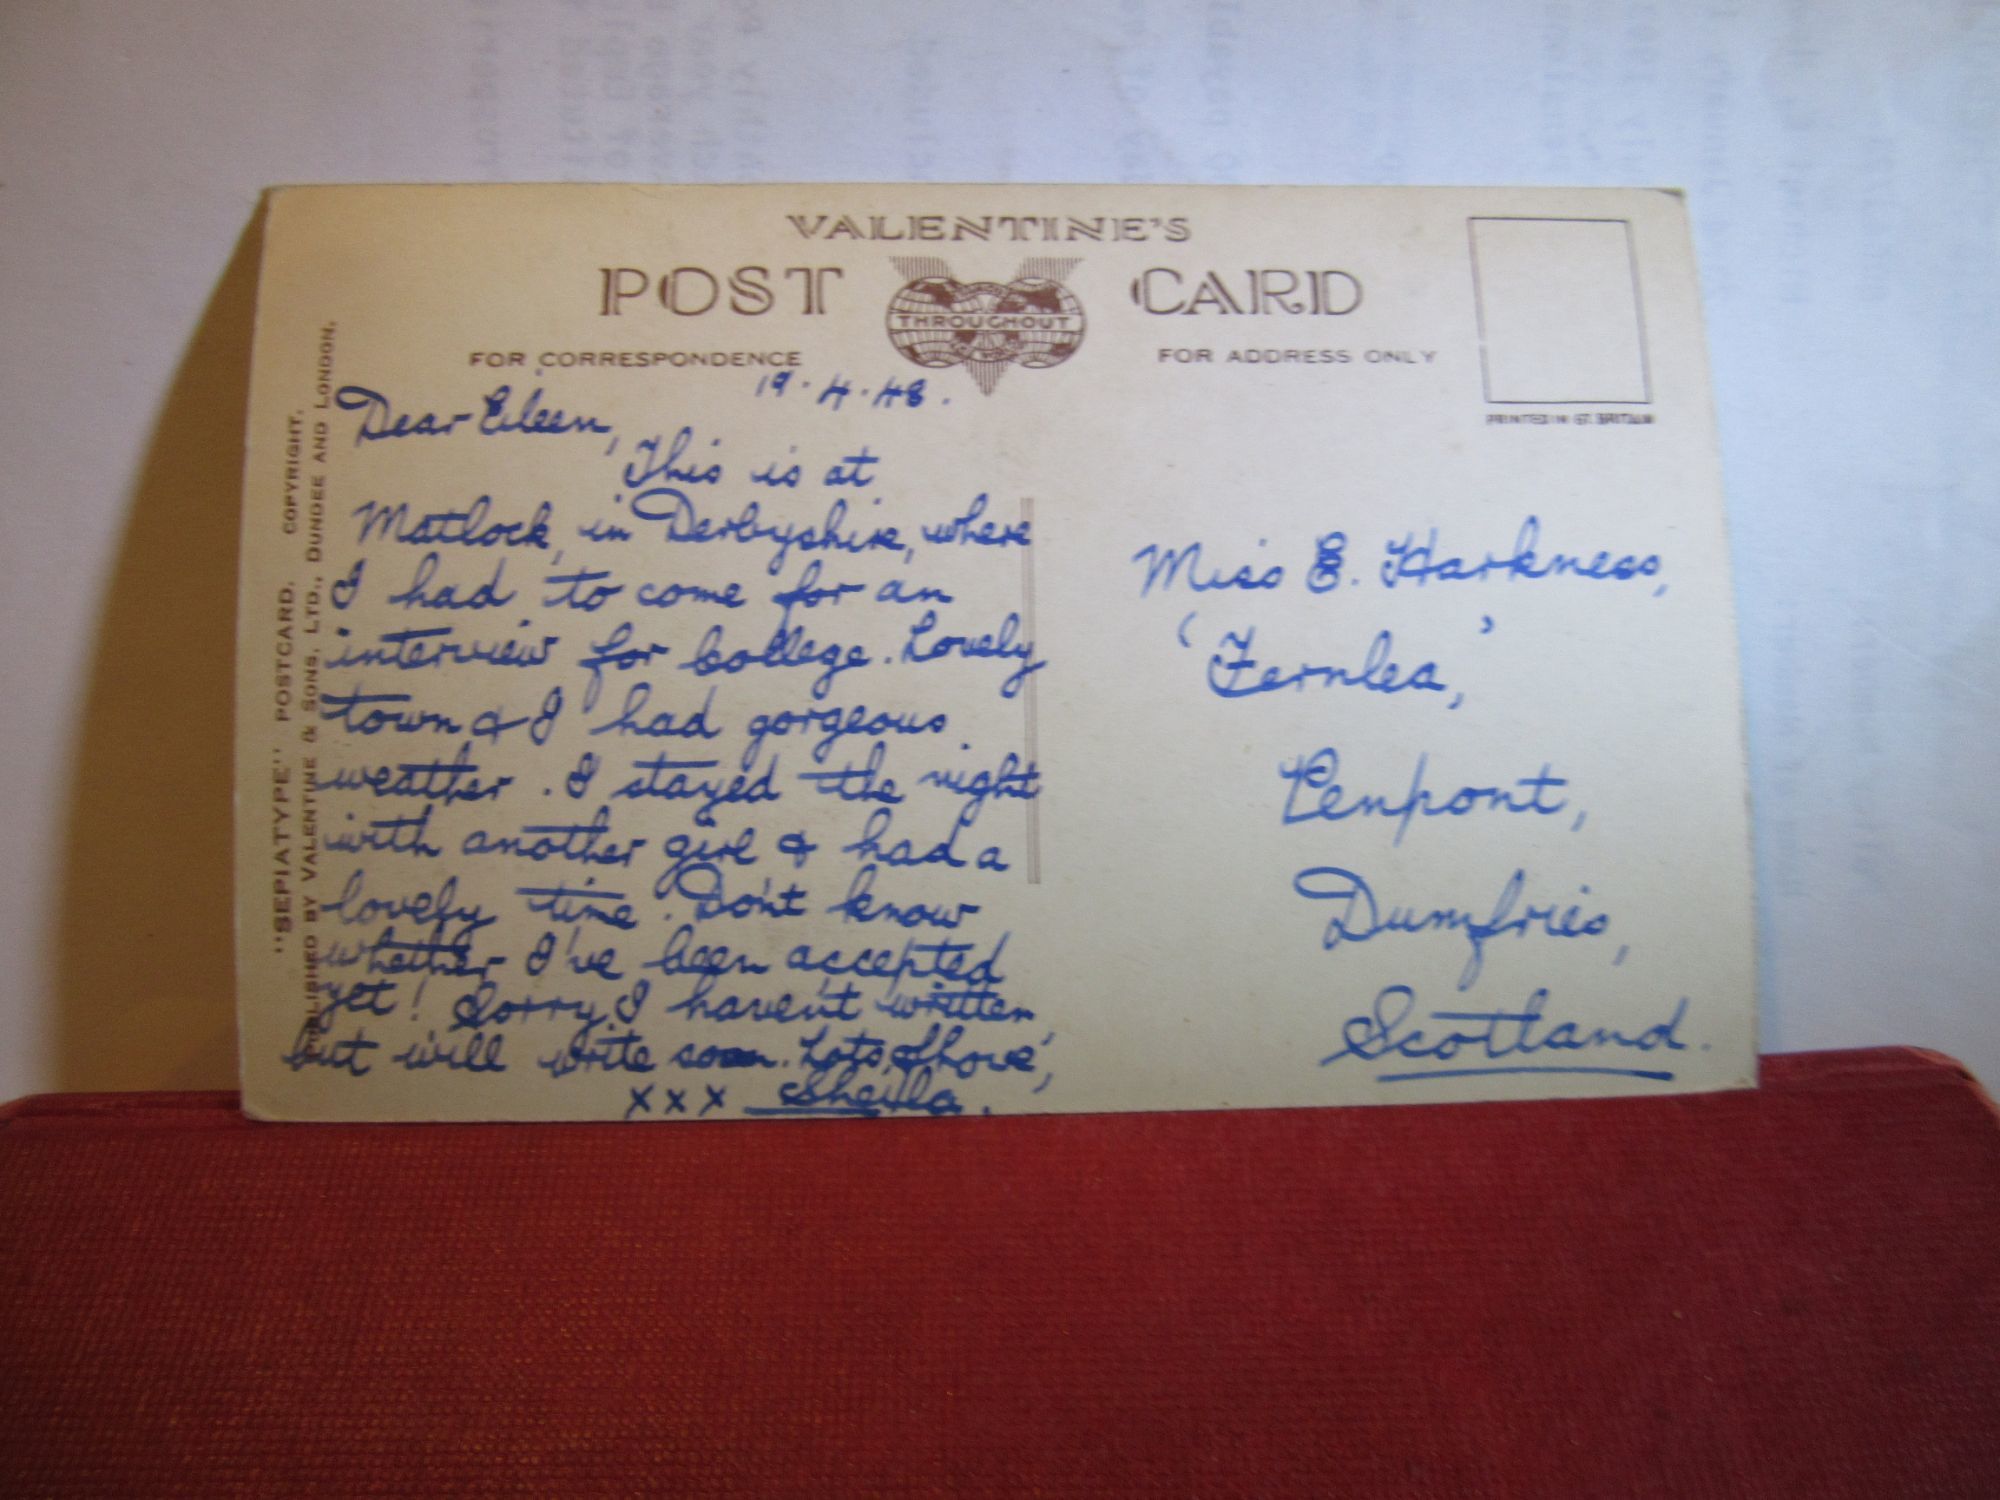 VALENTINE'S
POST CARD
THROUGHOUT
FOR CORRESPONDENCE
FOR ADDRESS ONLY
PRINTED IN GT. BRITAIN
"SEPIATYPE" POSTCARD. COPYRIGHT.
PUBLISHED BY VALENTINE & SONS, LTD., DUNDEE AND LONDON.
19.4.48.
Dear Eileen,
This is at
Matlock, in Derbyshire, where
I had to come for an
interview for College. Lovely
town & I had gorgeous
weather. I stayed the night
with another girl & had a
lovely time. Don't know
whether I've been accepted
yet! Sorry I haven't written,
but will write soon. Lots of love,
xxx Sheila.
Miss E. Harkness,
'Fernlea,'
Penpont,
Dumfries,
Scotland.